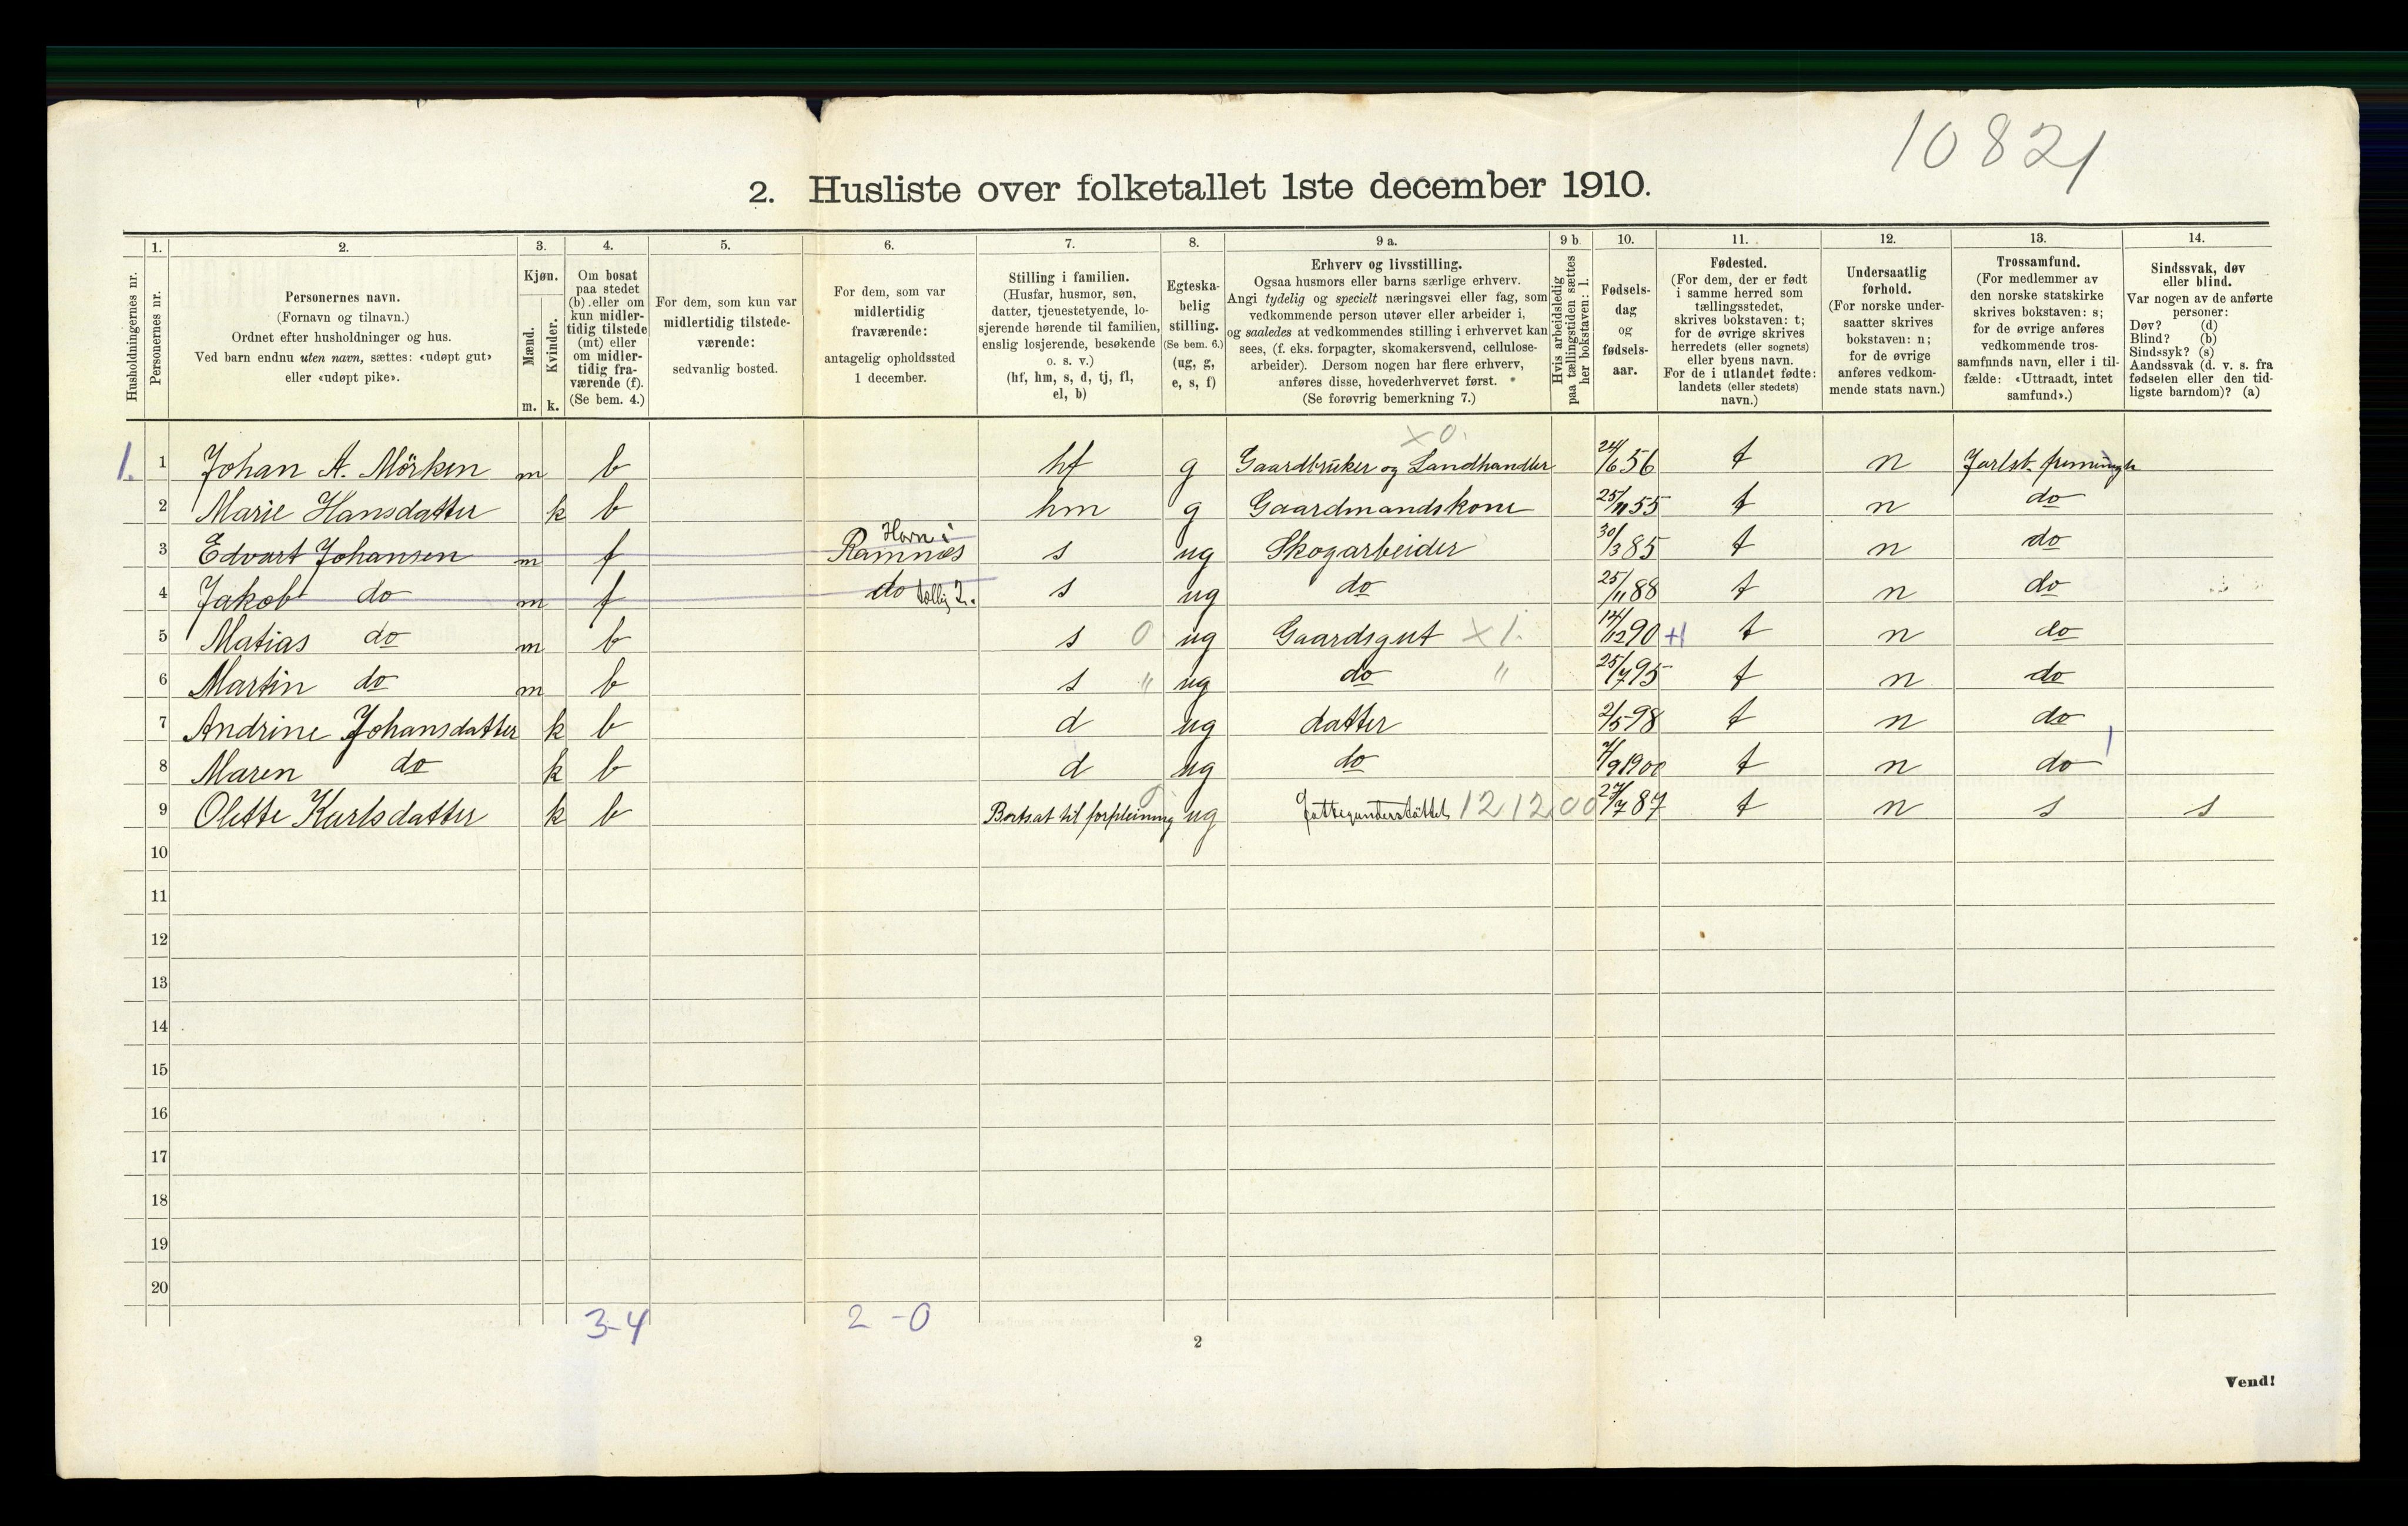 10821
2. Husliste over folketallet 1ste december 1910.
Husholdningernes nr.
1.
Personernes nr.
2.
Personernes navn.
(Fornavn og tilnavn.)
Ordnet efter husholdninger og hus.
Ved barn endnu uten navn, sættes: «udøpt gut»
eller «udøpt pike».
3.
Kjøn.
Mænd.
Kvinder.
m. k.
4.
Om bosat
paa stedet
(b) eller om
kun midler-
tidig tilstede
(mt) eller
om midler-
tidig fra-
værende (f).
(Se bem. 4.)
5.
For dem, som kun var
midlertidig tilstede-
værende:
sedvanlig bosted.
6.
For dem, som var
midlertidig
fraværende:
antagelig opholdssted
1 december.
7.
Stilling i familien.
(Husfar, husmor, søn,
datter, tjenestetyende, lo-
sjerende hørende til familien,
enslig losjerende, besøkende
o. s. v.)
(hf, hm, s, d, tj, fl,
el, b)
8.
Egteska-
belig
stilling.
(Se bem. 6.)
(ug, g,
e, s, f)
9 a.
Erhverv og livsstilling.
Ogsaa husmors eller barns særlige erhverv.
Angi tydelig og specielt næringsvei eller fag, som
vedkommende person utøver eller arbeider i,
og saaledes at vedkommendes stilling i erhvervet kan
sees, (f. eks. forpagter, skomakersvend, cellulose-
arbeider). Dersom nogen har flere erhverv,
anføres disse, hovederhvervet først.
(Se forøvrig bemerkning 7.)
9 b.
Hvis arbeidsledig
paa tællingstiden sættes
her bokstaven: l.
10.
Fødsels-
dag
og
fødsels-
aar.
11.
Fødested.
(For dem, der er født
i samme herred som
tællingsstedet,
skrives bokstaven: t;
for de øvrige skrives
herredets (eller sognets)
eller byens navn.
For de i utlandet fødte:
landets (eller stedets)
navn.)
12.
Undersaatlig
forhold.
(For norske under-
saatter skrives
bokstaven: n;
for de øvrige
anføres vedkom-
mende stats navn.)
13.
Trossamfund.
(For medlemmer av
den norske statskirke
skrives bokstaven: s;
for de øvrige anføres
vedkommende tros-
samfunds navn, eller i til-
fælde: «Uttraadt, intet
samfund».)
14.
Sindssvak, døv
eller blind.
Var nogen av de anførte
personer:
Døv? (d)
Blind? (b)
Sindssyk? (s)
Aandssvak (d. v. s. fra
fødselen eller den tid-
ligste barndom)? (a)
x0.
1. 1 Johan A. Mörken m b hf g Gaardbruker og Landhandler 24/6 56 t n Jarlsb.
2 Marie Hansdatter k b hm g Gaardmandskone 25/11 55 t n do
Horn i
3 Edvart Johansen m f Ramnes s ug Skogarbeider 30/3 85 t n do
4 Jakob do m f do s ug do 25/11 88 t n do
5 Matias do m b s 0 ug Gaardsgut x1. 14/12 90 +1 t n do
6 Martin do m b s " ug do " 25/7 95 t n do
7 Andrine Johansdatter k b d ug datter 2/5 98 t n do
8 Maren do k b d ug do 7/9 1900 t n do
9 Olette Karlsdatter k b Bortsat til forpleining ug Fattigunderstöttet 12 12 00 27/7 87 t n s s
10
11
12
13
14
15
16
17
18
19
20
3-4 2-0
2
Vend!